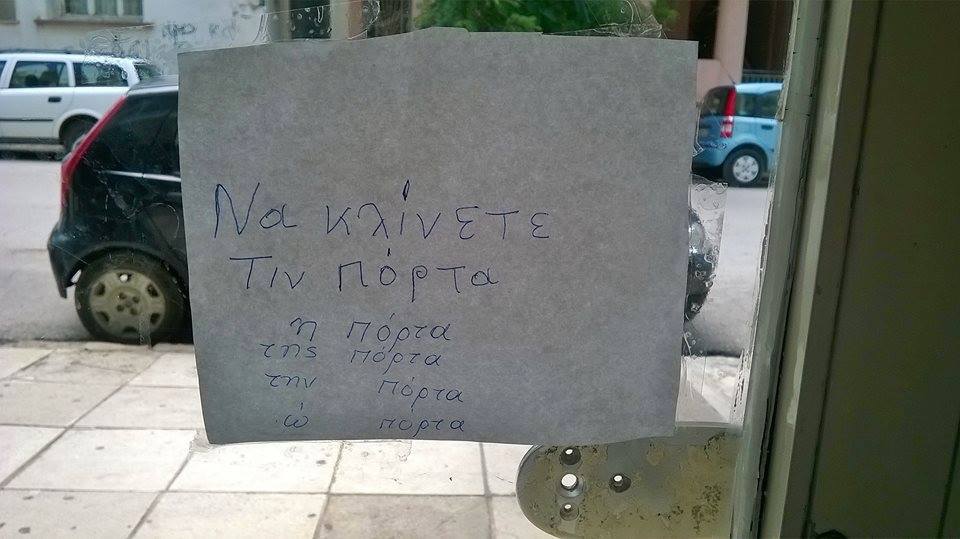 Να κλίνετε
Τιν πόρτα
η πόρτα
της πόρτα
την πόρτα
ώ πόρτα